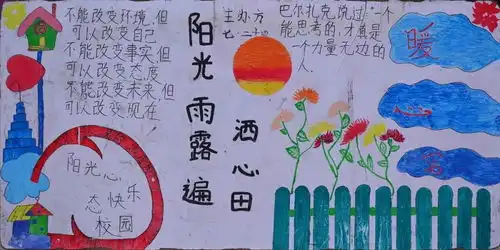 不能改变环境,但
可以改变自己
不能改变事实,但
可以改变态度
不能改变未来,但
可以改变现在
阳光心
态快乐
校园
阳光雨露遍
洒心田
主办方
七·二十四
巴尔扎克说过:一个
能思考的,才真是
一个力量无边的
人.
暖
心